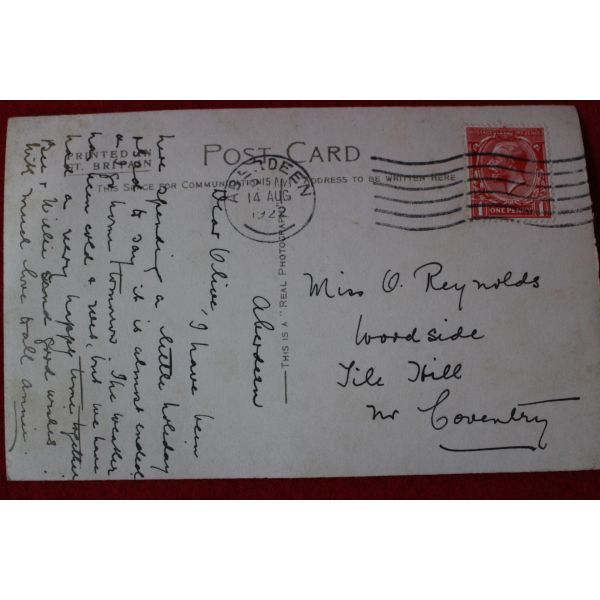 POST CARD
PRINTED IN
GT. BRITAIN
THIS SPACE FOR COMMUNICATIONS
ADDRESS TO BE WRITTEN HERE
THIS IS A "REAL PHOTOGRAPH"
ABERDEEN
14 AUG
192
POSTAGE
ONE PENNY
Miss O. Reynolds
Woodside
Tile Hill
Nr Coventry
Aberdeen
Dear Olive, I have been
here spending a little holiday
to day it is almost ended
home tomorrow. The weather
has been cold & wet, but we have
had a very happy time together
Bee & Willie send good wishes.
With much love to all Annie.